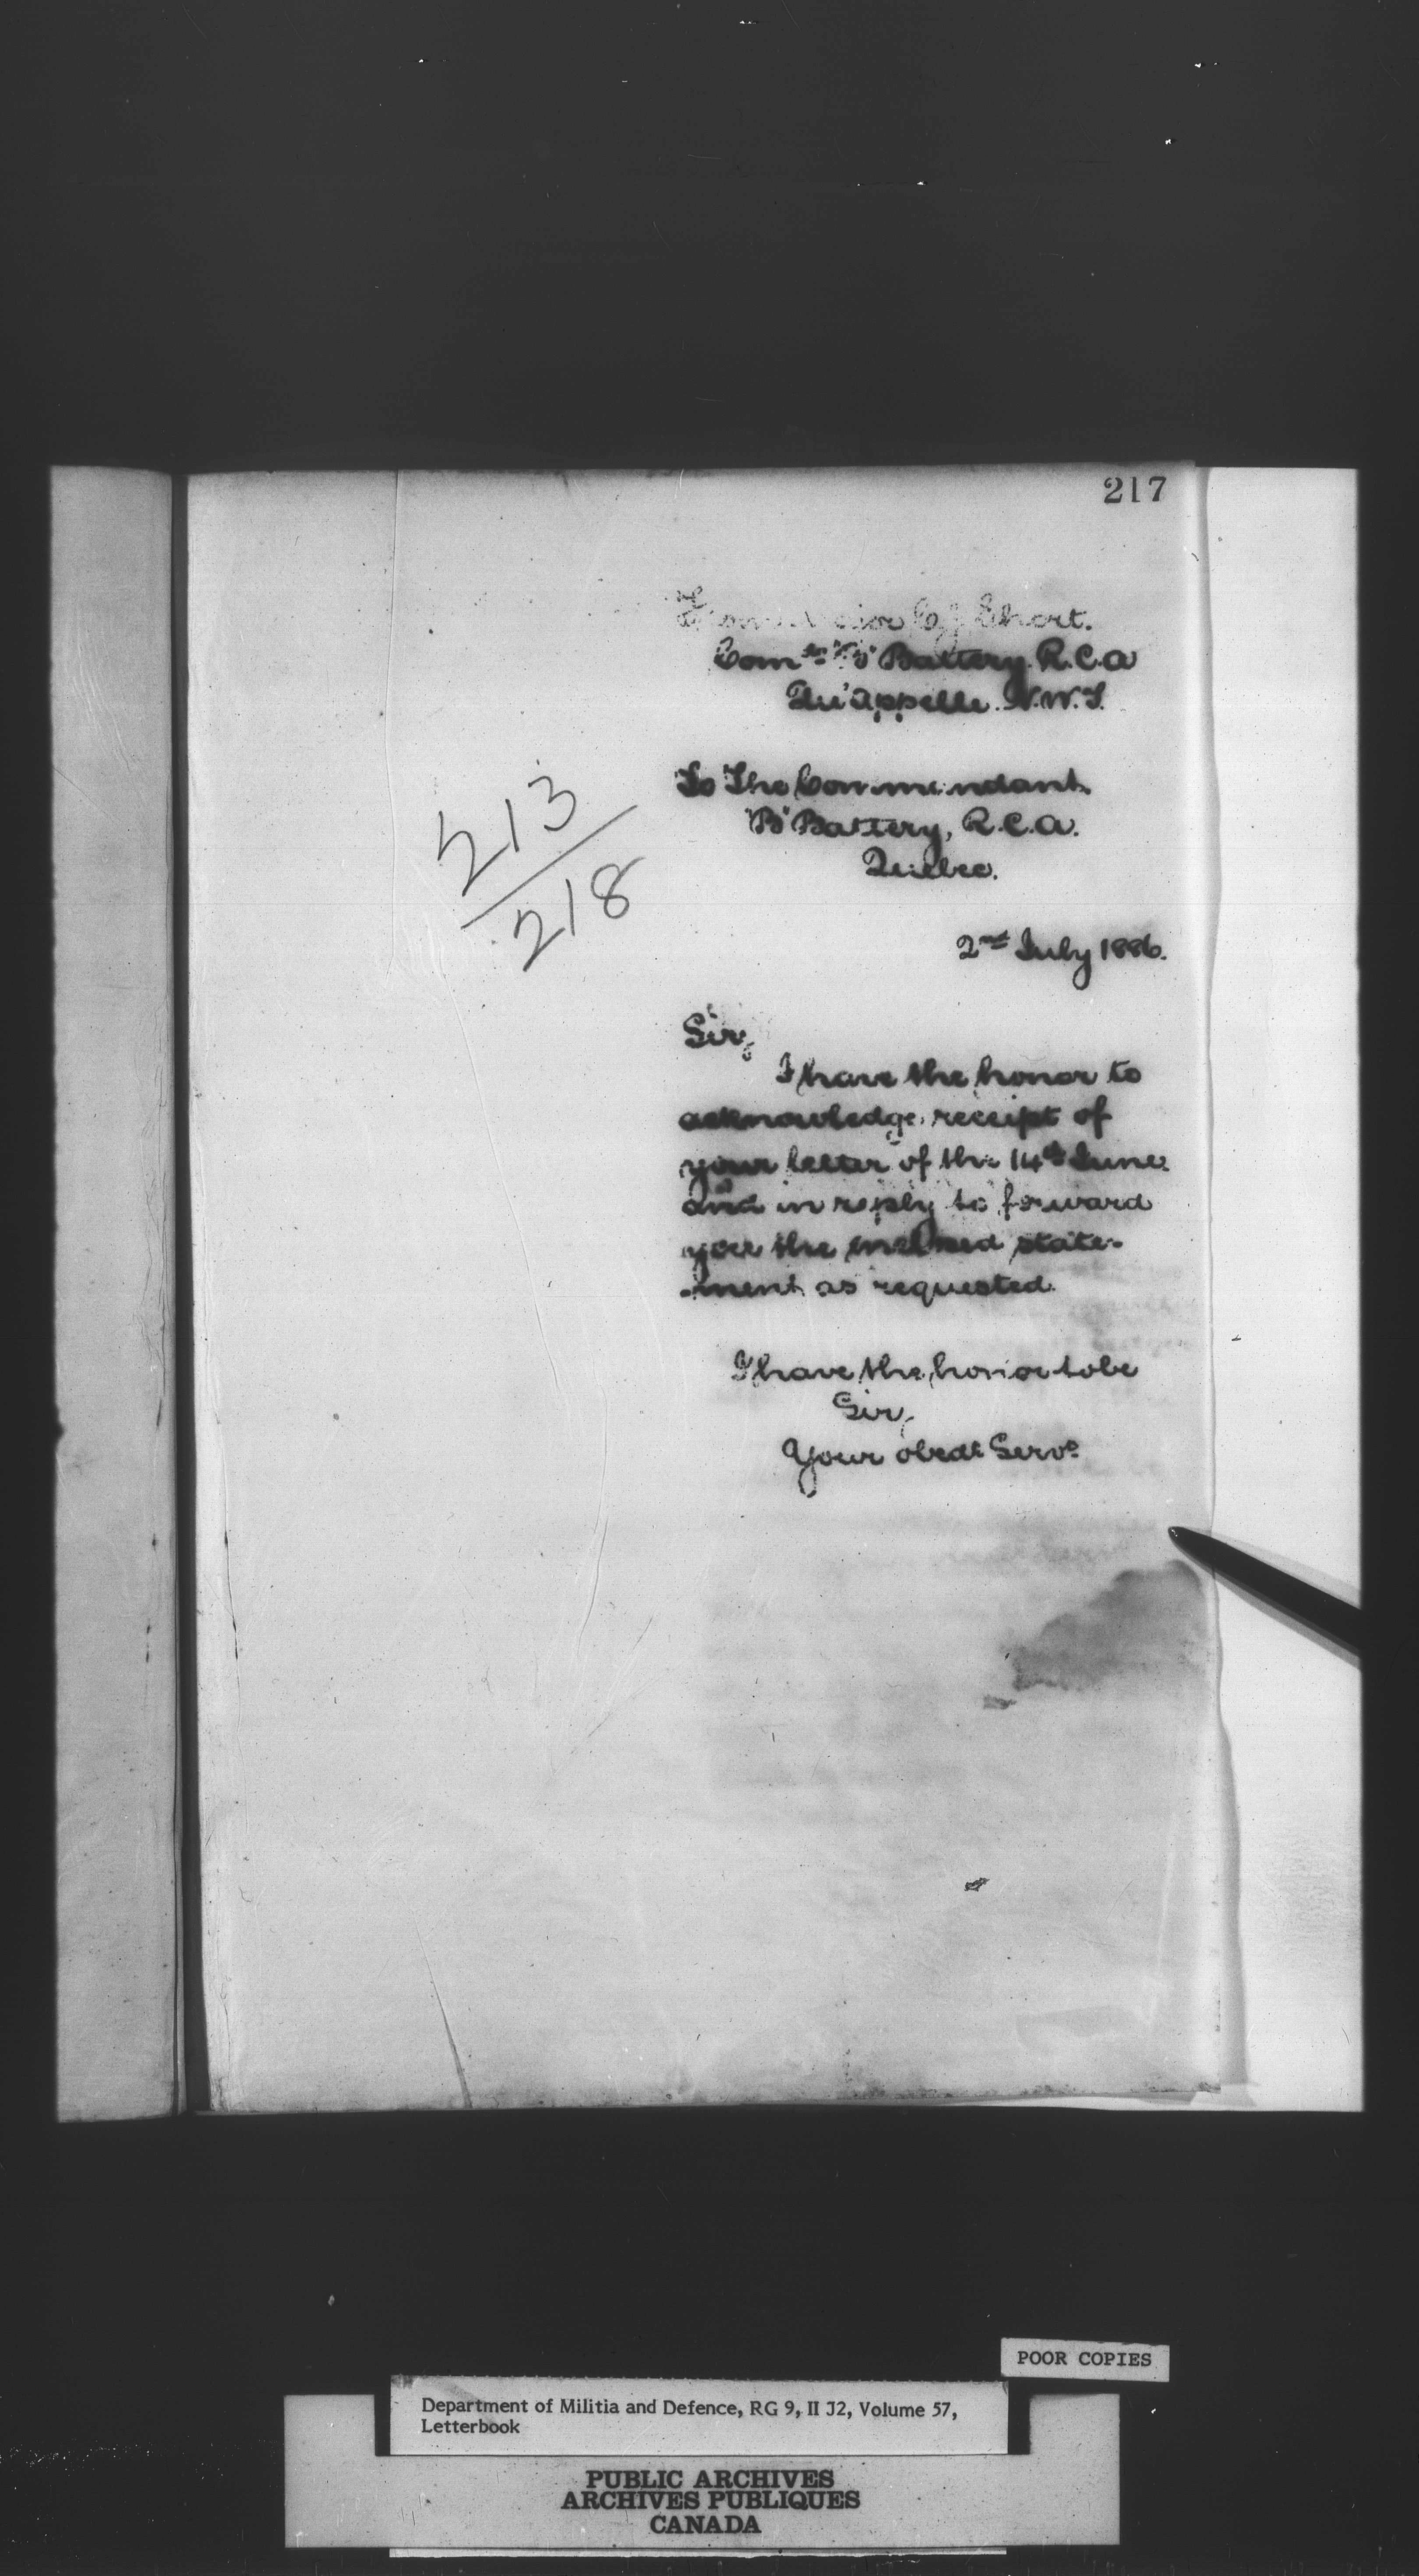 217
From Major C J Short.
Com^dg "B" Battery. R.C.A
Qu'Appelle. N.W.T.
To The Commandant
"B" Battery, R.C.A.
Quebec.
213
218
2nd July 1886.
Sir,
I have the honor to
acknowledge receipt of
your letter of the 14th June
and in reply to forward
you the inclosed state-
-ment as requested.
I have the honor to be
Sir,
Your obedt Servt
POOR COPIES
Department of Militia and Defence, RG 9, II J2, Volume 57,
Letterbook
PUBLIC ARCHIVES
ARCHIVES PUBLIQUES
CANADA